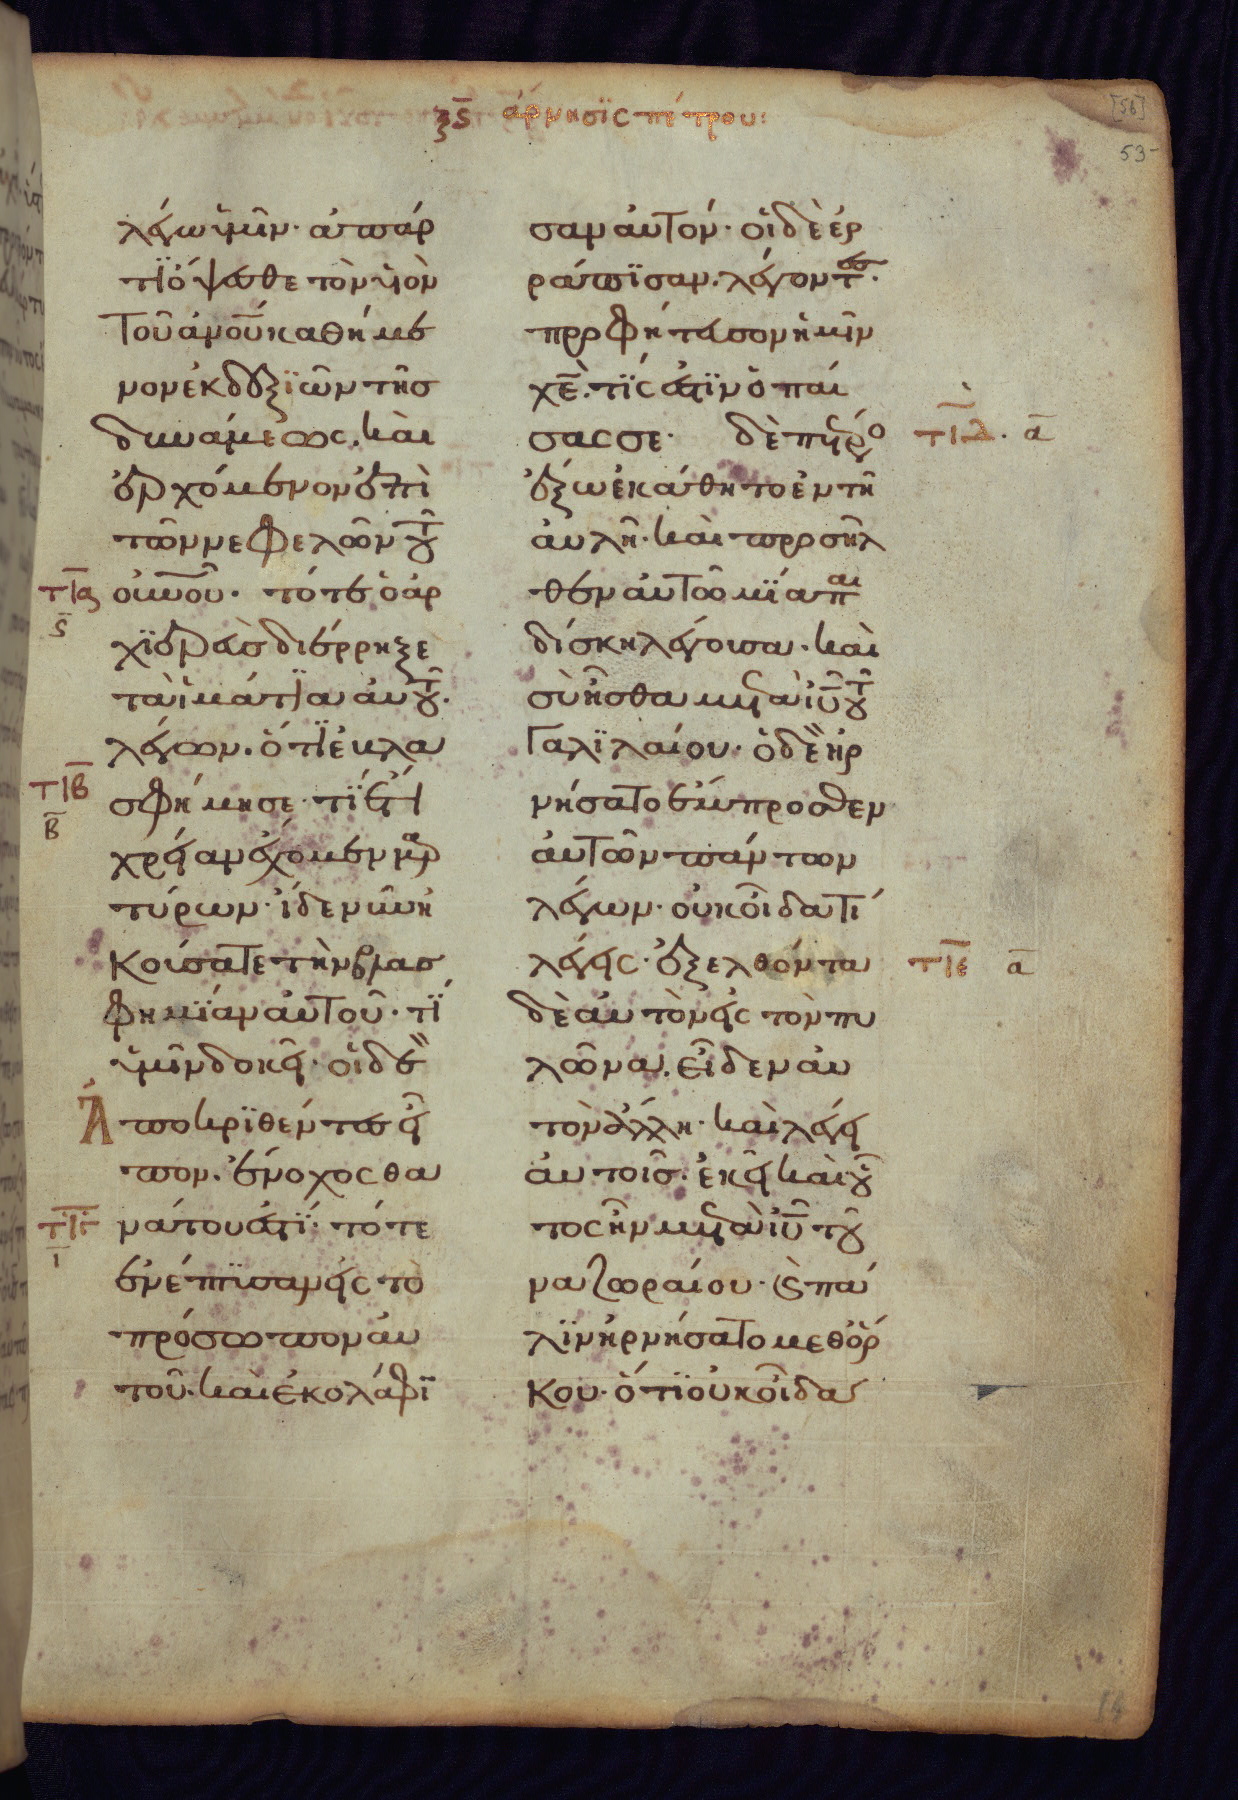 ξϛ̄ ἀρνησϊς πέτρου:
[56]
53
λέγω ὑμῖν· ἀπάρ
τϊ ὄψεσθε τὸν υἱὸν
τοῦ ἀν̅ο̅υ̅ καθήμε
νον ἐκ δεξϊῶν τῆς
δυνάμεως, καὶ
ἐρχόμενον ἐπὶ
τῶν νεφελῶν τοῦ
οὐν̅ο̅υ̅· τότε ὁ ἀρ
χϊερεὺς διέρρηξε
τὰ ἱμάτϊα αὐτοῦ·
λέγων· ὅτϊ ἐβλα
σφήμησε· τϊ ἔτϊ
χρείαν ἔχομεν μαρ
τύρων· ἴδε νῦν ἠ
κούσατε τὴν βλασ
φημϊαν αὐτοῦ· τϊ
ὑμῖν δοκεῖ· οἱ δὲ
Ἀποκρϊθέντες εἶ
πον· ἔνοχος θα
νάτου ἐστϊ· τότε
ἐνέπτϊσαν εἰς τὸ
πρόσωπον αὐ
τοῦ· καὶ ἐκολάφϊ
σαν αὐτόν· οἱ δὲ ἐρ
ράπϊσαν, λέγοντες·
προφήτευσον ἡμῖν
χ̅ε̅· τϊς ἐστϊν ὁ παί
σας σε· δὲ πέτρο
ἔξω ἐκάθητο ἐν τῇ
αὐλῇ· καὶ προσῆλ
θεν αὐτῷ μϊα παι
δίσκη λέγουσα· καὶ
σὺ ἦσθα μετὰ ι̅υ̅ τοῦ
Γαλϊλαίου· ὁ δὲ ἠρ
νήσατο ἔμπροσθεν
αὐτῶν πάντων
λέγων· οὐκ οἶδα τί
λέγεις· ἐξελθόντα
δὲ αὐτὸν εἰς τὸν πυ
λῶνα, εἶδεν αὐ
τὸν ἄλλη· καὶ λέγει
αὐτοῖς· ἐκεῖ καὶ οὗ
τος ἦν μετὰ ι̅υ̅ τοῦ
ναζωραίου· ϗ πά
λϊν ἠρνήσατο μεθ ὅρ
κου· ὅτϊ οὐκ οἶδα
τ̅ι̅α̅
ϛ̅
τ̅ι̅β̅
β̅
τ̅ι̅γ̅
ι̅
τ̅ι̅δ̅· α̅
τ̅ι̅ε̅ α̅